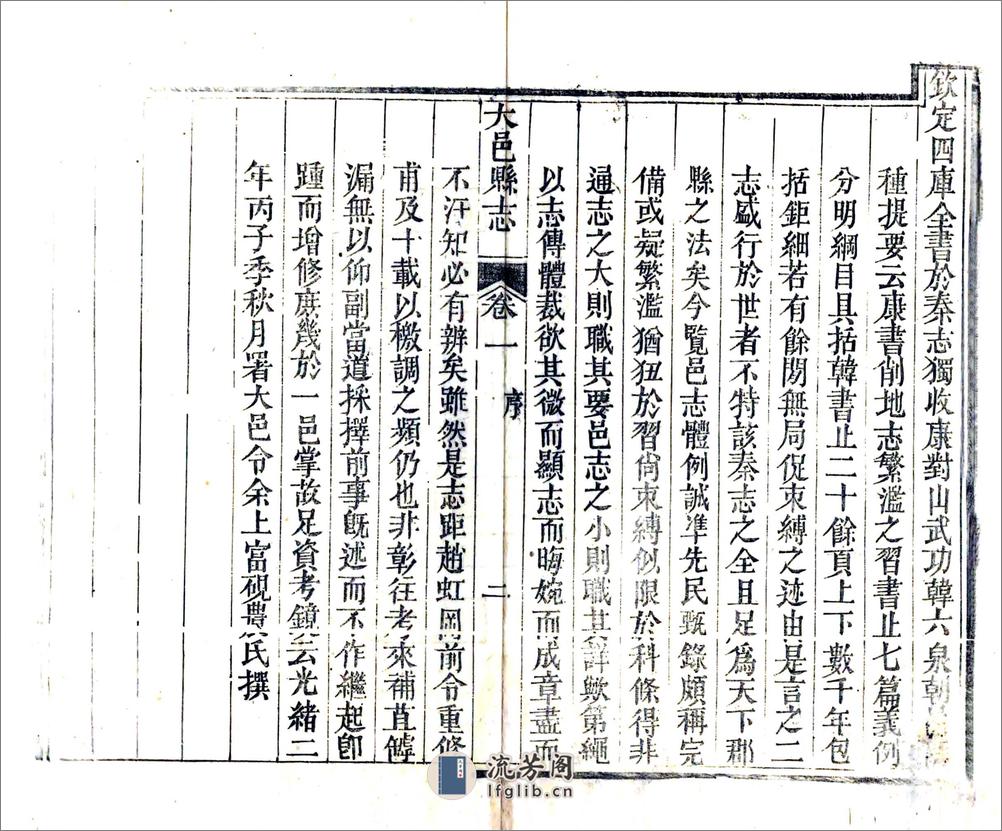 欽定四庫全書於秦志獨收康對山武功韓六泉朝邑
種提要云康書削地志繁濫之習書止七篇義例
分明綱目具括韓書止二十餘頁上下數千年包
括鉅細若有餘閒無局促束縛之迹由是言之二
志盛行於世者不特該秦志之全且足為天下郡
縣之法矣今覽邑志體例誠準先民甄錄頗稱完
備或疑繁濫猶狃於習尙束縛似限於科條得非
通志之大則職其要邑志之小則職其詳歟第繩
以志傳體裁欲其微而顯志而晦婉而成章盡而
大邑縣志 卷一 序 二
不汙知必有辨矣雖然是志距趙虹岡前令重修
甫及十載以檄調之頻仍也非彰往考來補苴罅
漏無以仰副當道採擇前事旣述而不作繼起卽
踵而增修庶幾於一邑掌故足資考鏡云光緒二
年丙子季秋月署大邑令余上富硯農氏撰
流芳阁
lfglib.cn